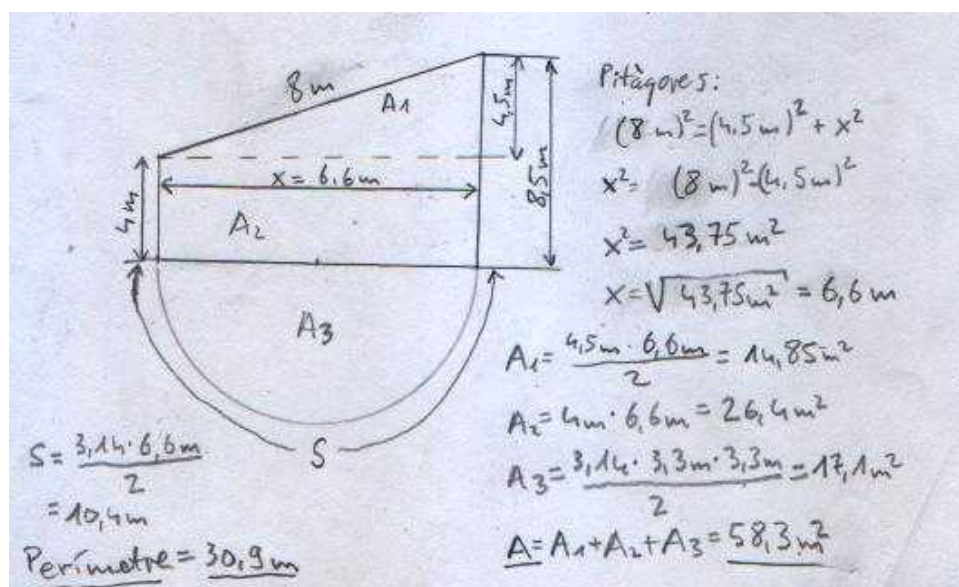 8m
A1
4,5m
8,5m
x = 6,6m
4m
A2
A3
S
S= 3,14·6,6m
2
= 10,4m
Perímetre = 30,9m
Pitàgores:
(8m)²=(4.5m)² + x²
x²= (8m)²-(4,5m)²
x²= 43,75m²
x=√43,75m² = 6,6m
A1= 4,5m · 6,6m = 14,85m²
2
A2= 4m·6,6m = 26,4m²
A3= 3,14·3,3m·3,3m = 17,1m²
2
A= A1+A2+A3 = 58,3m²